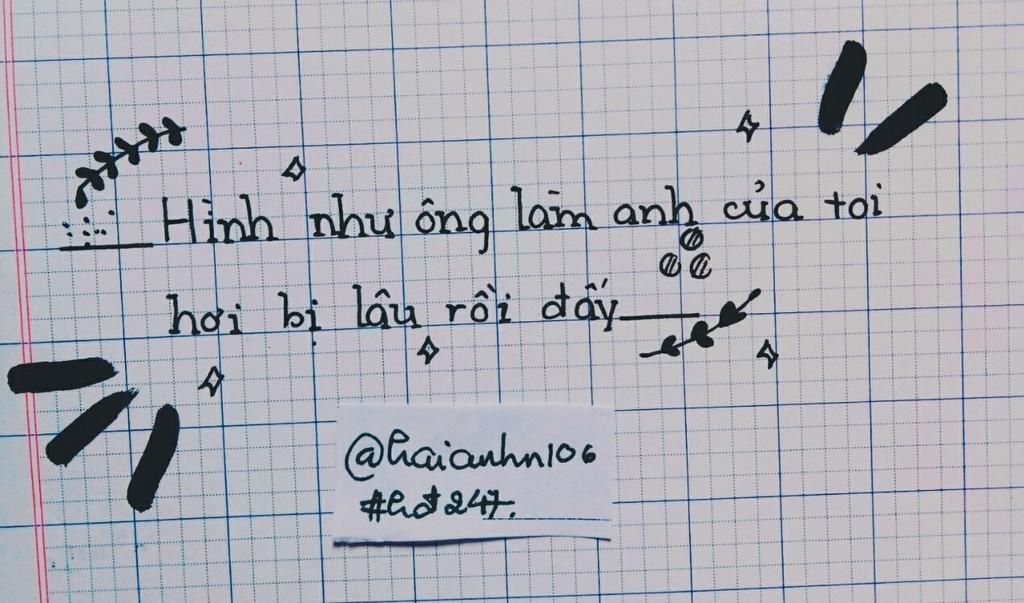 Hình như ông làm anh của tôi
hơi bị lâu rồi đấy
@haianhn106
#hđ247.